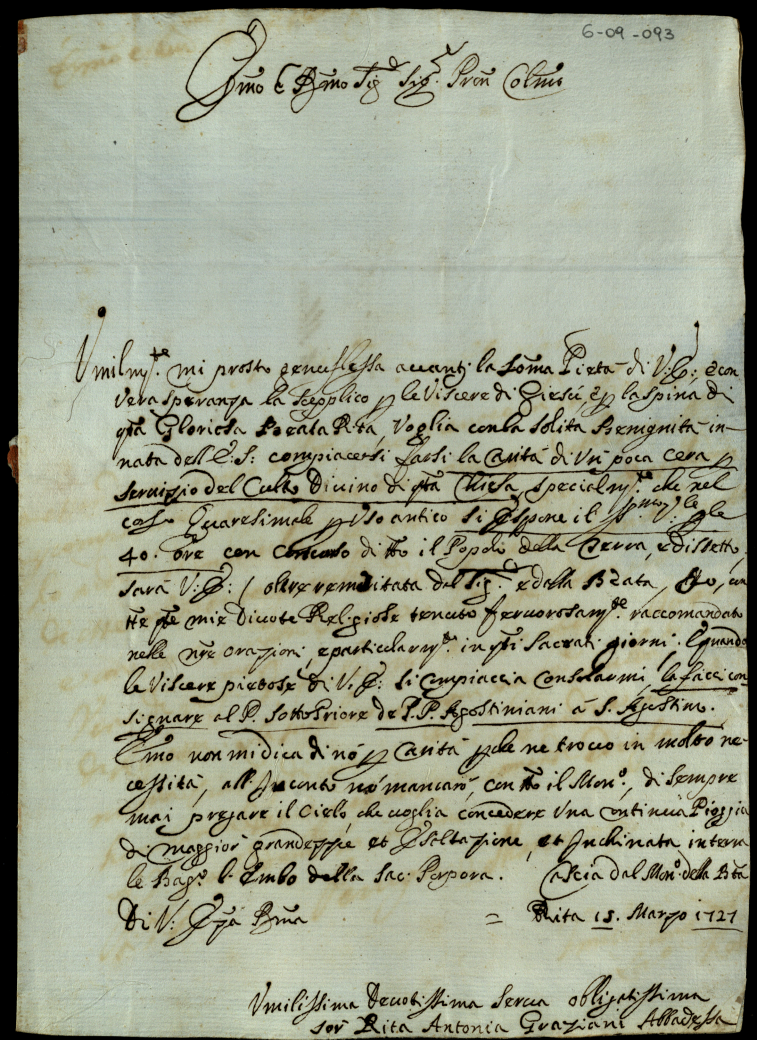 6-09-093
Emo e Rmo Sig.r Sig.r Pron Colmo
Umilm.te mi prosto genuflessa avanti la Somma Pietà di V: E:, e con
vera speranza la supplico p le Viscere di Giesù, e p la spina di
qta Gloriosa Beata Rita, voglia con la solita Benignità in-
nata dell'E: S: compiacersi farsi la Carità di Un poca Cera p
servizio del Culto Divino di qta Chiesa, specialm.te che nel
corso Quaresimale p Uso antico si Espone il p le
40. Ore con Concorso di tto il Popolo della Terra, e distretto,
sarà V: E: / oltre remeritata del Sig.r e dalla Beata, / con
tte qte mie Divote Religiose tenuto fervorosam.te raccomandato
nelle nre orazioni, e particularm.te in qti Sacrati giorni. Quando
le Viscere pietose di V: E: si Compiaccia Consolarmi, la facci con
signare al P. Sotto Priore de P.P. Agostiniani à S. Agostino.
Emo non mi dica di nò p Carità, pche ne trovo in molto ne-
cessità, all'Inconto nò mancarò, con tto il Mon.o, di Sempre
mai pregare il Cielo, che voglia concedere Una continua Pioggia
di maggior grandezze, et Esaltazione, et Inchinata in terra
le Bag.o l. Embo della Sac: Porpora. Cascia dal Mon.o della Bta
Di V: Ema Rma = Rita 15. Marzo 1727
Umilissima Devotissima Serva obligatissima
Sor Rita Antonia Graziani Abbadessa